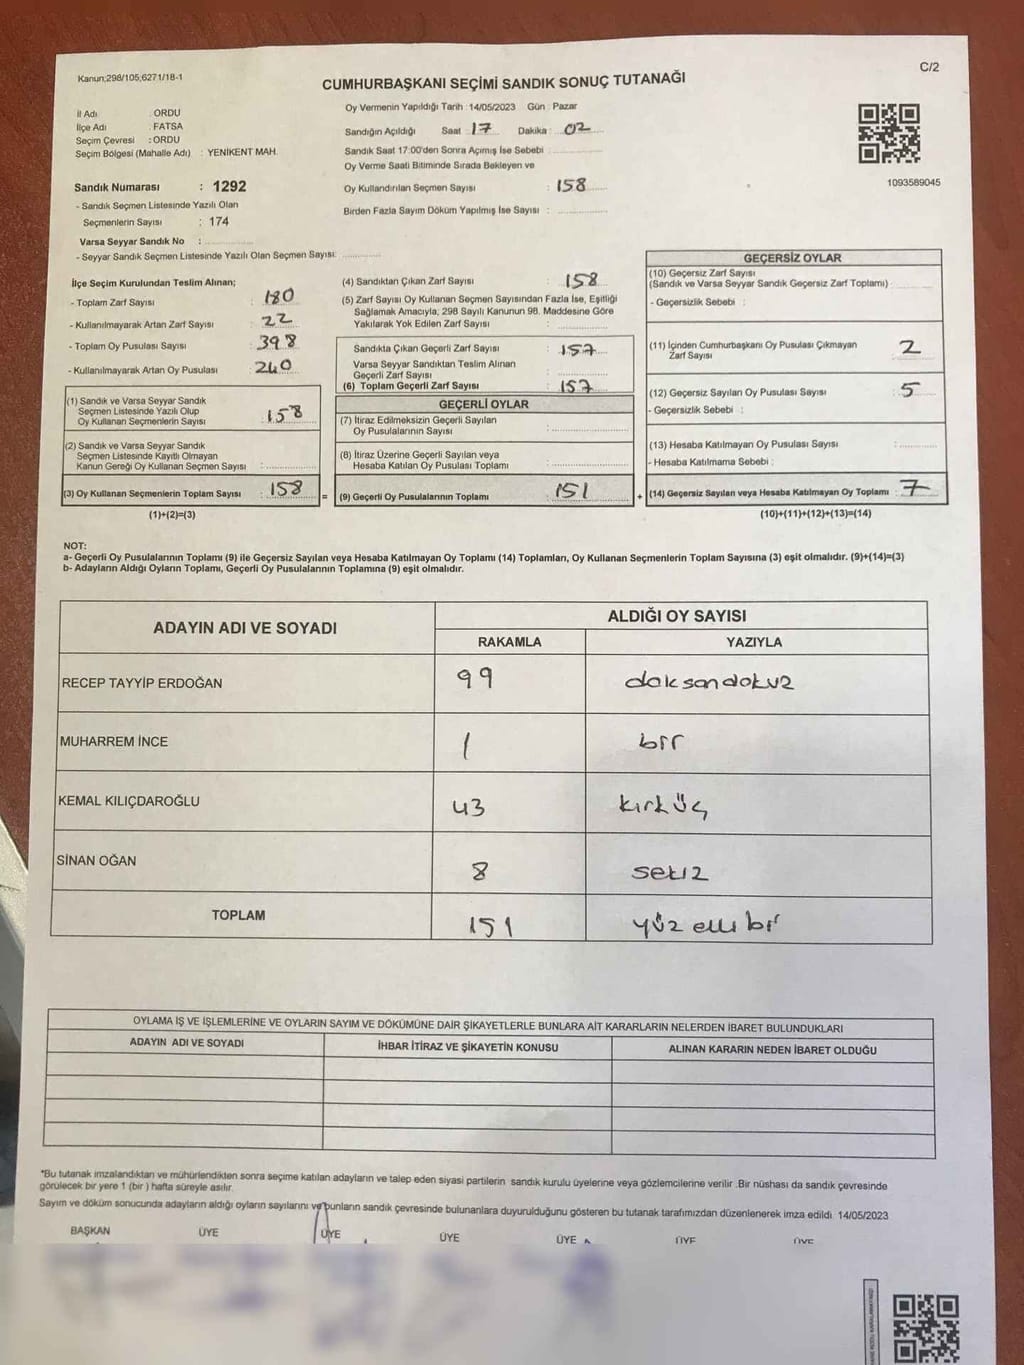 Kanun;298/105,6271/18-1
C/2
CUMHURBAŞKANI SEÇİMİ SANDIK SONUÇ TUTANAĞI
İl Adı : ORDU
İlçe Adı : FATSA
Seçim Çevresi : ORDU
Seçim Bölgesi (Mahalle Adı) : YENİKENT MAH.
Sandık Numarası : 1292
- Sandık Seçmen Listesinde Yazılı Olan
Seçmenlerin Sayısı : 174
Varsa Seyyar Sandık No :
- Seyyar Sandık Seçmen Listesinde Yazılı Olan Seçmen Sayısı:
Oy Vermenin Yapıldığı Tarih :14/05/2023 Gün : Pazar
Sandığın Açıldığı Saat : 17 Dakika : 02
Sandık Saat 17:00'den Sonra Açımış İse Sebebi :
Oy Verme Saati Bitiminde Sırada Bekleyen ve
Oy Kullandırılan Seçmen Sayısı : 158
Birden Fazla Sayım Döküm Yapılmış İse Sayısı :
1093589045
İlçe Seçim Kurulundan Teslim Alınan;
- Toplam Zarf Sayısı : 180
- Kullanılmayarak Artan Zarf Sayısı : 22
- Toplam Oy Pusulası Sayısı : 398
- Kullanılmayarak Artan Oy Pusulası : 240
(1) Sandık ve Varsa Seyyar Sandık
Seçmen Listesinde Yazılı Olup
Oy Kullanan Seçmenlerin Sayısı : 158
(2) Sandık ve Varsa Seyyar Sandık
Seçmen Listesinde Kayıtlı Olmayan
Kanun Gereği Oy Kullanan Seçmen Sayısı :
(3) Oy Kullanan Seçmenlerin Toplam Sayısı : 158
(1)+(2)=(3)
(4) Sandıktan Çıkan Zarf Sayısı : 158
(5) Zarf Sayısı Oy Kullanan Seçmen Sayısından Fazla İse, Eşitliği
Sağlamak Amacıyla, 298 Sayılı Kanunun 98. Maddesine Göre
Yakılarak Yok Edilen Zarf Sayısı :
Sandıkta Çıkan Geçerli Zarf Sayısı : 157
Varsa Seyyar Sandıktan Teslim Alınan
Geçerli Zarf Sayısı :
(6) Toplam Geçerli Zarf Sayısı : 157
GEÇERLİ OYLAR
(7) İtiraz Edilmeksizin Geçerli Sayılan
Oy Pusulalarının Sayısı :
(8) İtiraz Üzerine Geçerli Sayılan veya
Hesaba Katılan Oy Pusulası Toplamı :
= (9) Geçerli Oy Pusulalarının Toplamı : 151 +
GEÇERSİZ OYLAR
(10) Geçersiz Zarf Sayısı
(Sandık ve Varsa Seyyar Sandık Geçersiz Zarf Toplamı) :
- Geçersizlik Sebebi :
(11) İçinden Cumhurbaşkanı Oy Pusulası Çıkmayan
Zarf Sayısı : 2
(12) Geçersiz Sayılan Oy Pusulası Sayısı : 5
- Geçersizlik Sebebi :
(13) Hesaba Katılmayan Oy Pusulası Sayısı :
- Hesaba Katılmama Sebebi :
(14) Geçersiz Sayılan veya Hesaba Katılmayan Oy Toplamı : 7
(10)+(11)+(12)+(13)=(14)
NOT:
a- Geçerli Oy Pusulalarının Toplamı (9) ile Geçersiz Sayılan veya Hesaba Katılmayan Oy Toplamı (14) Toplamları, Oy Kullanan Seçmenlerin Toplam Sayısına (3) eşit olmalıdır. (9)+(14)=(3)
b- Adayların Aldığı Oyların Toplamı, Geçerli Oy Pusulalarının Toplamına (9) eşit olmalıdır.
ADAYIN ADI VE SOYADI ALDIĞI OY SAYISI
RAKAMLA YAZIYLA
RECEP TAYYİP ERDOĞAN 99 doksandokuz
MUHARREM İNCE 1 bir
KEMAL KILIÇDAROĞLU 43 kırküç
SİNAN OĞAN 8 sekiz
TOPLAM 151 yüz elli bir
OYLAMA İŞ VE İŞLEMLERİNE VE OYLARIN SAYIM VE DÖKÜMÜNE DAİR ŞİKAYETLERLE BUNLARA AİT KARARLARIN NELERDEN İBARET BULUNDUKLARI
ADAYIN ADI VE SOYADI İHBAR İTİRAZ VE ŞİKAYETİN KONUSU ALINAN KARARIN NEDEN İBARET OLDUĞU
*Bu tutanak imzalandıktan ve mühürlendikten sonra seçime katılan adayların ve talep eden siyasi partilerin sandık kurulu üyelerine veya gözlemcilerine verilir .Bir nüshası da sandık çevresinde
görülecek bir yere 1 (bir ) hafta süreyle asılır.
Sayım ve döküm sonucunda adayların aldığı oyların sayılarını ve bunların sandık çevresinde bulunanlara duyurulduğunu gösteren bu tutanak tarafımızdan düzenlenerek imza edildi. 14/05/2023
BAŞKAN ÜYE ÜYE ÜYE ÜYE ÜYE ÜYE